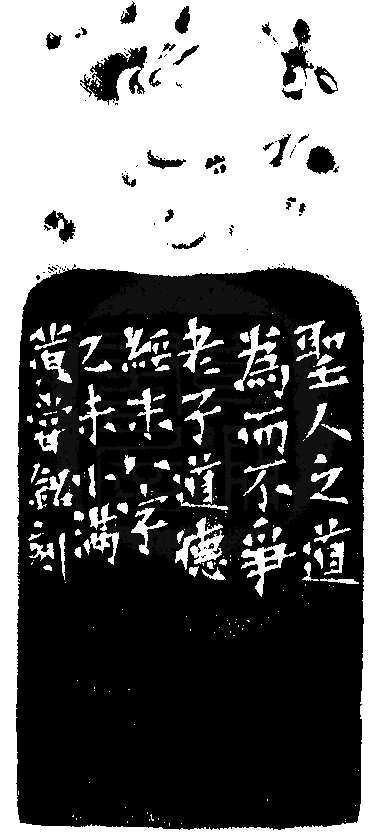 聖人之道
為而不爭
老子道德
經末八字
乙未小滿
黄嘗銘刻